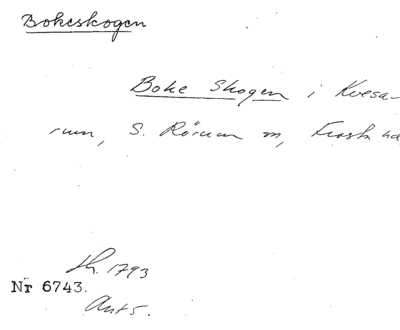 Bokeskogen
Boke Skogen i Kvesa-
rum, S. Rörum sn, Frosta hd
1793
Nr 6743.
Ant 5.